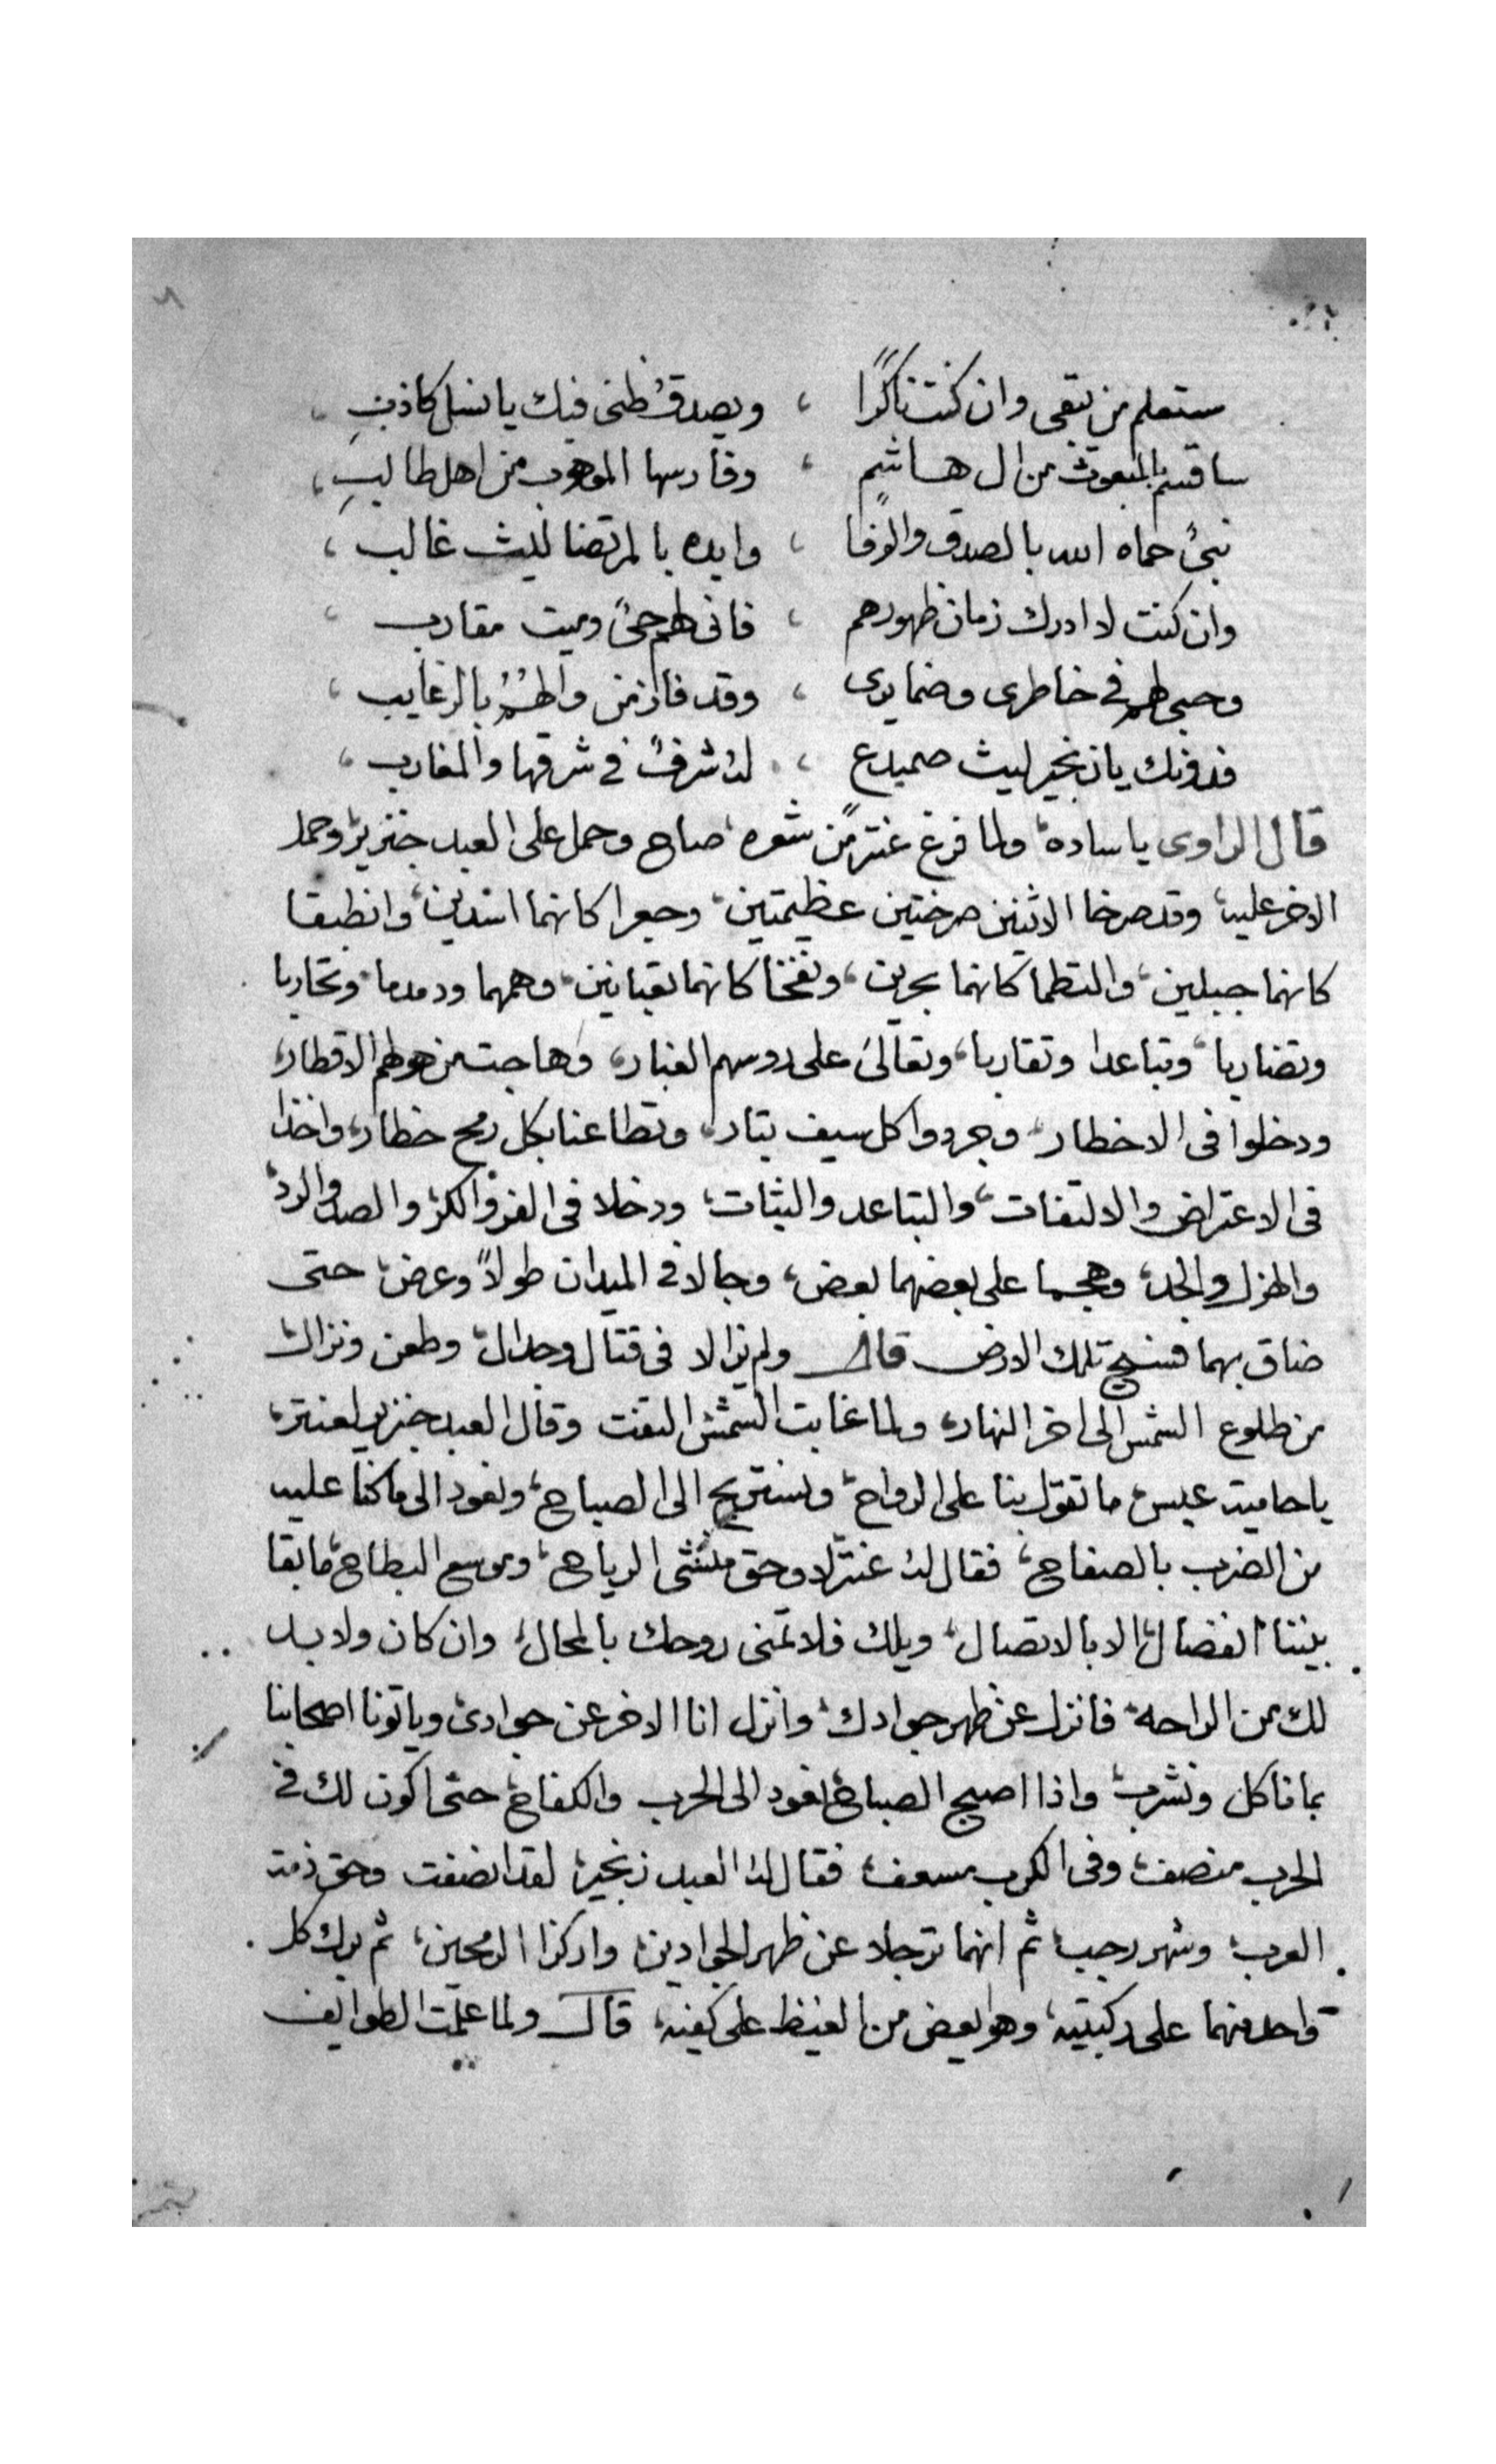 ستعلم من تبقى وان كنت ناكرًا ، ويصدق ظنى فيك يا نسل كاذبِ
ساقسم بالمبعوث من ال هاشمٍ ، وفارسها الموهوب من اهل طالبِ
نبىٌ حماه الله بالصدق والوفا ، وايده بالمرتضا ليث غالب
وان كنت لا ادرك زمان ظهورهم ، فانى لهم حىٌ وميت مقارب
وحبى لهم فى خاطرى وضمايرى ، وقد فاز من والهم بالرغايب
فدونك يا زنجير ليث صميدع ، له شرفٌ فى شرقها والمغارب
قال الراوى يا ساده ولما فرغ عنتر من شعره صاح وحمل على العبد خنزير وحمل
الاخر عليه، وقد صرخا الاثنين صرختين عظيمتين، وجعرا كانهما اسدين، وانطبقا
كانهما جبلين، والتطما كانهما بحرين، ونفخا كانهما ثعبانين، وهمهما ودمدما، وتحاربا
وتضاربا، وتباعدا وتقاربا، وتعالى على روسهم الغبار، وهاجت من هولهم الاقطار،
ودخلوا فى الاخطار، وجردوا كل سيف بتار، وتطاعنا بكل رمح خطار، واخذا
فى الاعتراض والالتفات، والتباعد والثبات، ودخلا فى الفر والكر، والصد والرد،
والهزل والجد، وهجما على بعضهما بعض، وجالا فى الميدان طولاً وعرض، حتى
ضاق بهما فسيح تلك الارض قال ولم يزالا فى قتال وجدال، وطعن ونزال،
من طلوع الشمس الى اخر النهار، ولما غابت الشمس التفت وقال العبد خنزير لعنتر،
يا حامية عبس، ما تقول بنا على الرواح، ونستريح الى الصباح، ونعود الى ما كنا عليه
من الضرب بالصفاح، فقال له عنتر لا وحق منشى الرياح، وموسع البطاح، ما بقا
بيننا انفصال، الا بالاتصال، ويلك فلا تمنى روحك بالمحال، وان كان ولا بد
لك من الراحه، فانزل عن ظهر جوادك، وانزل انا الاخر عن جوادى، وياتونا اصحابنا
بما ناكل ونشرب، واذا اصبح الصباح، نعود الى الحرب والكفاح، حتى اكون لك فى
الحرب منصف، وفى الكرب مسعف، فقال له العبد زنجير، لقد انصفت وحق ذمة
العرب، وشهر رجب، ثم انهما ترجلا عن ظهر الجوادين، واركزا الرمحين، ثم برك كل
واحد منهما على ركبتيه، وهو يعض من الغيظ على كفيه، قال ولما علمت الطوايف